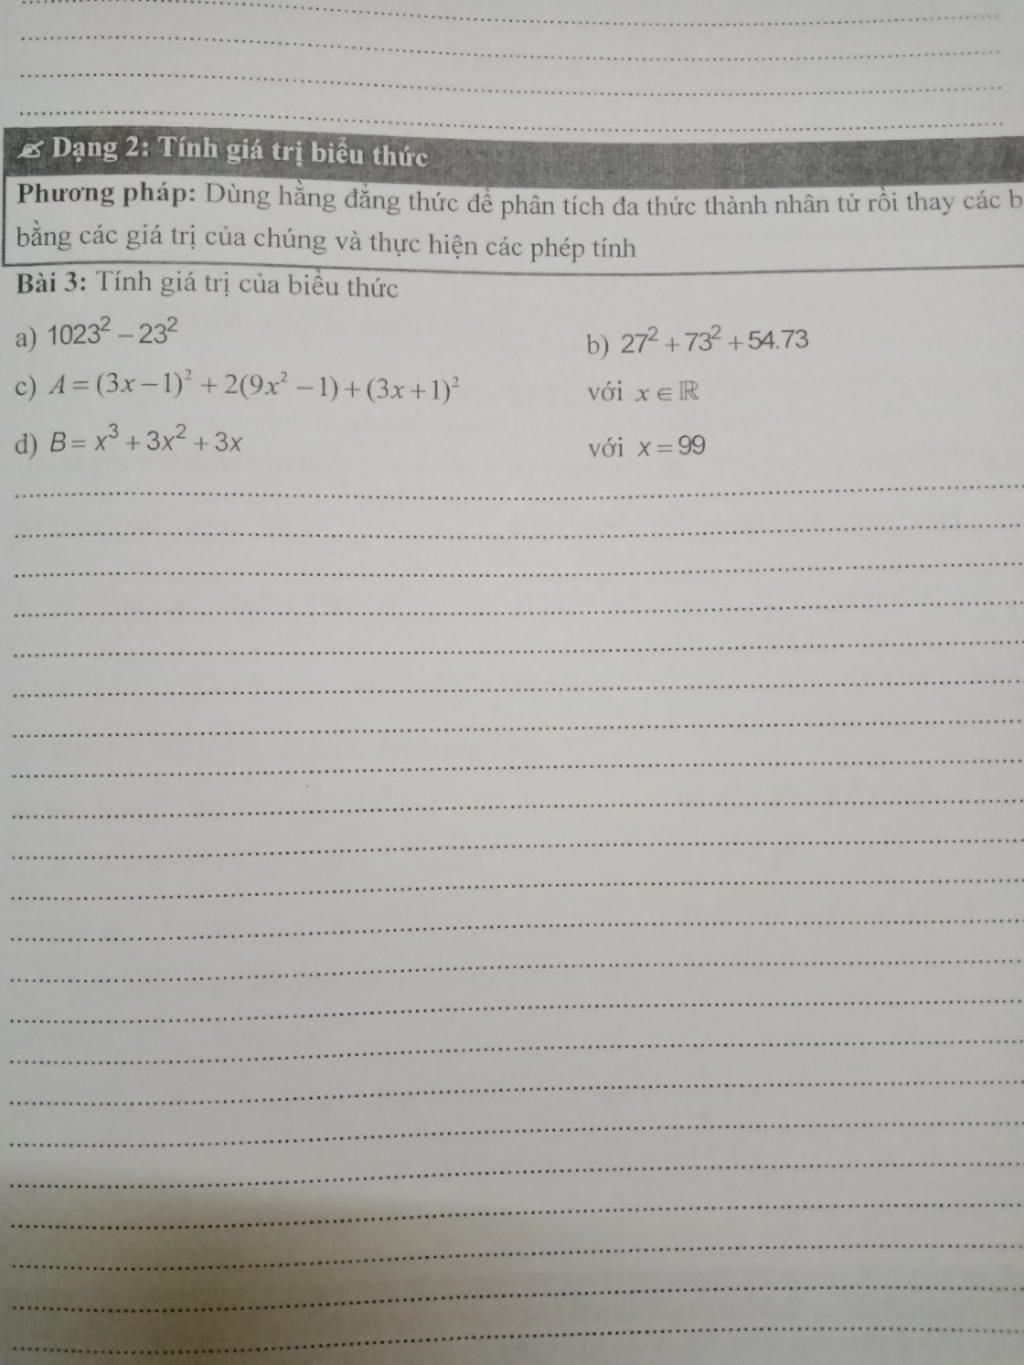 Dạng 2: Tính giá trị biểu thức
Phương pháp: Dùng hằng đẳng thức để phân tích đa thức thành nhân tử rồi thay các b
bằng các giá trị của chúng và thực hiện các phép tính
Bài 3: Tính giá trị của biểu thức
a) 1023² – 23²
b) 27² + 73² + 54.73
c) A = (3x – 1)² + 2(9x² – 1) + (3x + 1)²
với x ∈ ℝ
d) B = x³ + 3x² + 3x
với x = 99